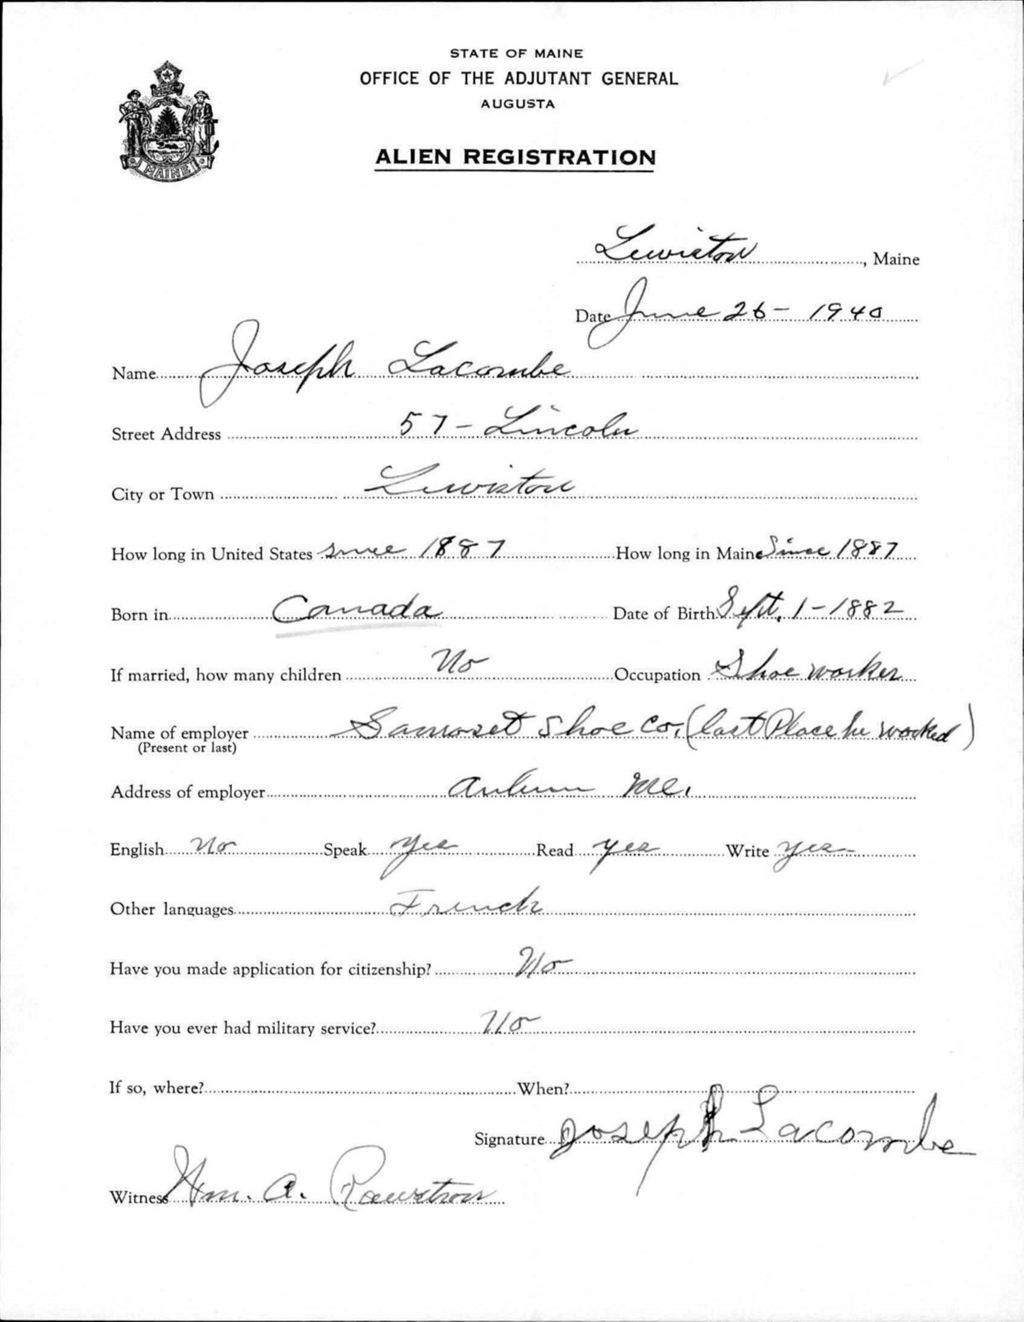 STATE OF MAINE
OFFICE OF THE ADJUTANT GENERAL
AUGUSTA
ALIEN REGISTRATION
MAINE
Lewiston, Maine
Date June 26 - 1940
Name Joseph Lacombe
Street Address 57 - Lincoln
City or Town Lewiston
How long in United States since 1887 How long in Maine Since 1887
Born in Canada Date of Birth Sept. 1 - 1882
If married, how many children No Occupation Shoe worker
Name of employer Samoset Shoe Co, (last Place he worked)
(Present or last)
Address of employer Auburn Me.
English No Speak Yes Read yes Write yes
Other languages French
Have you made application for citizenship? No
Have you ever had military service? No
If so, where? When?
Signature Joseph Lacombe
Witness Wm. A. Rowstron